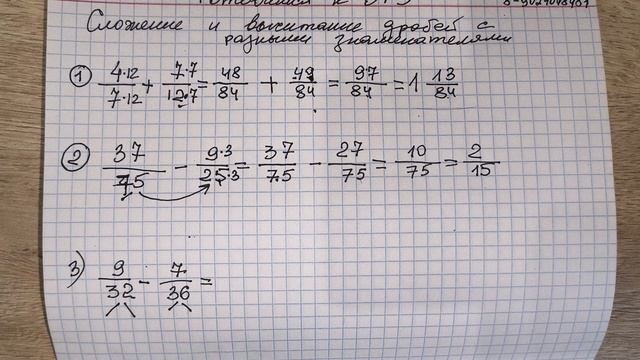 Сложение и вычитание дробей с
разными знаменателями
① 4·12/7·12 + 7·7/12·7 = 48/84 + 49/84 = 97/84 = 1 13/84
② 37/75 - 9·3/25·3 = 37/75 - 27/75 = 10/75 = 2/15
3) 9/32 - 7/36 =